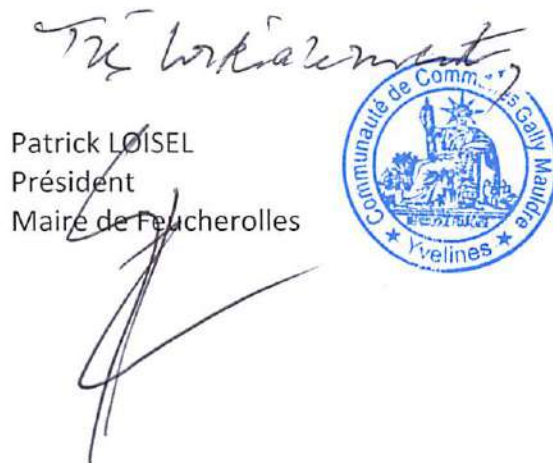 Très cordialement,
Patrick LOISEL
Président
Maire de Feucherolles
Communauté de Communes Gally Mauldre
★ Yvelines ★